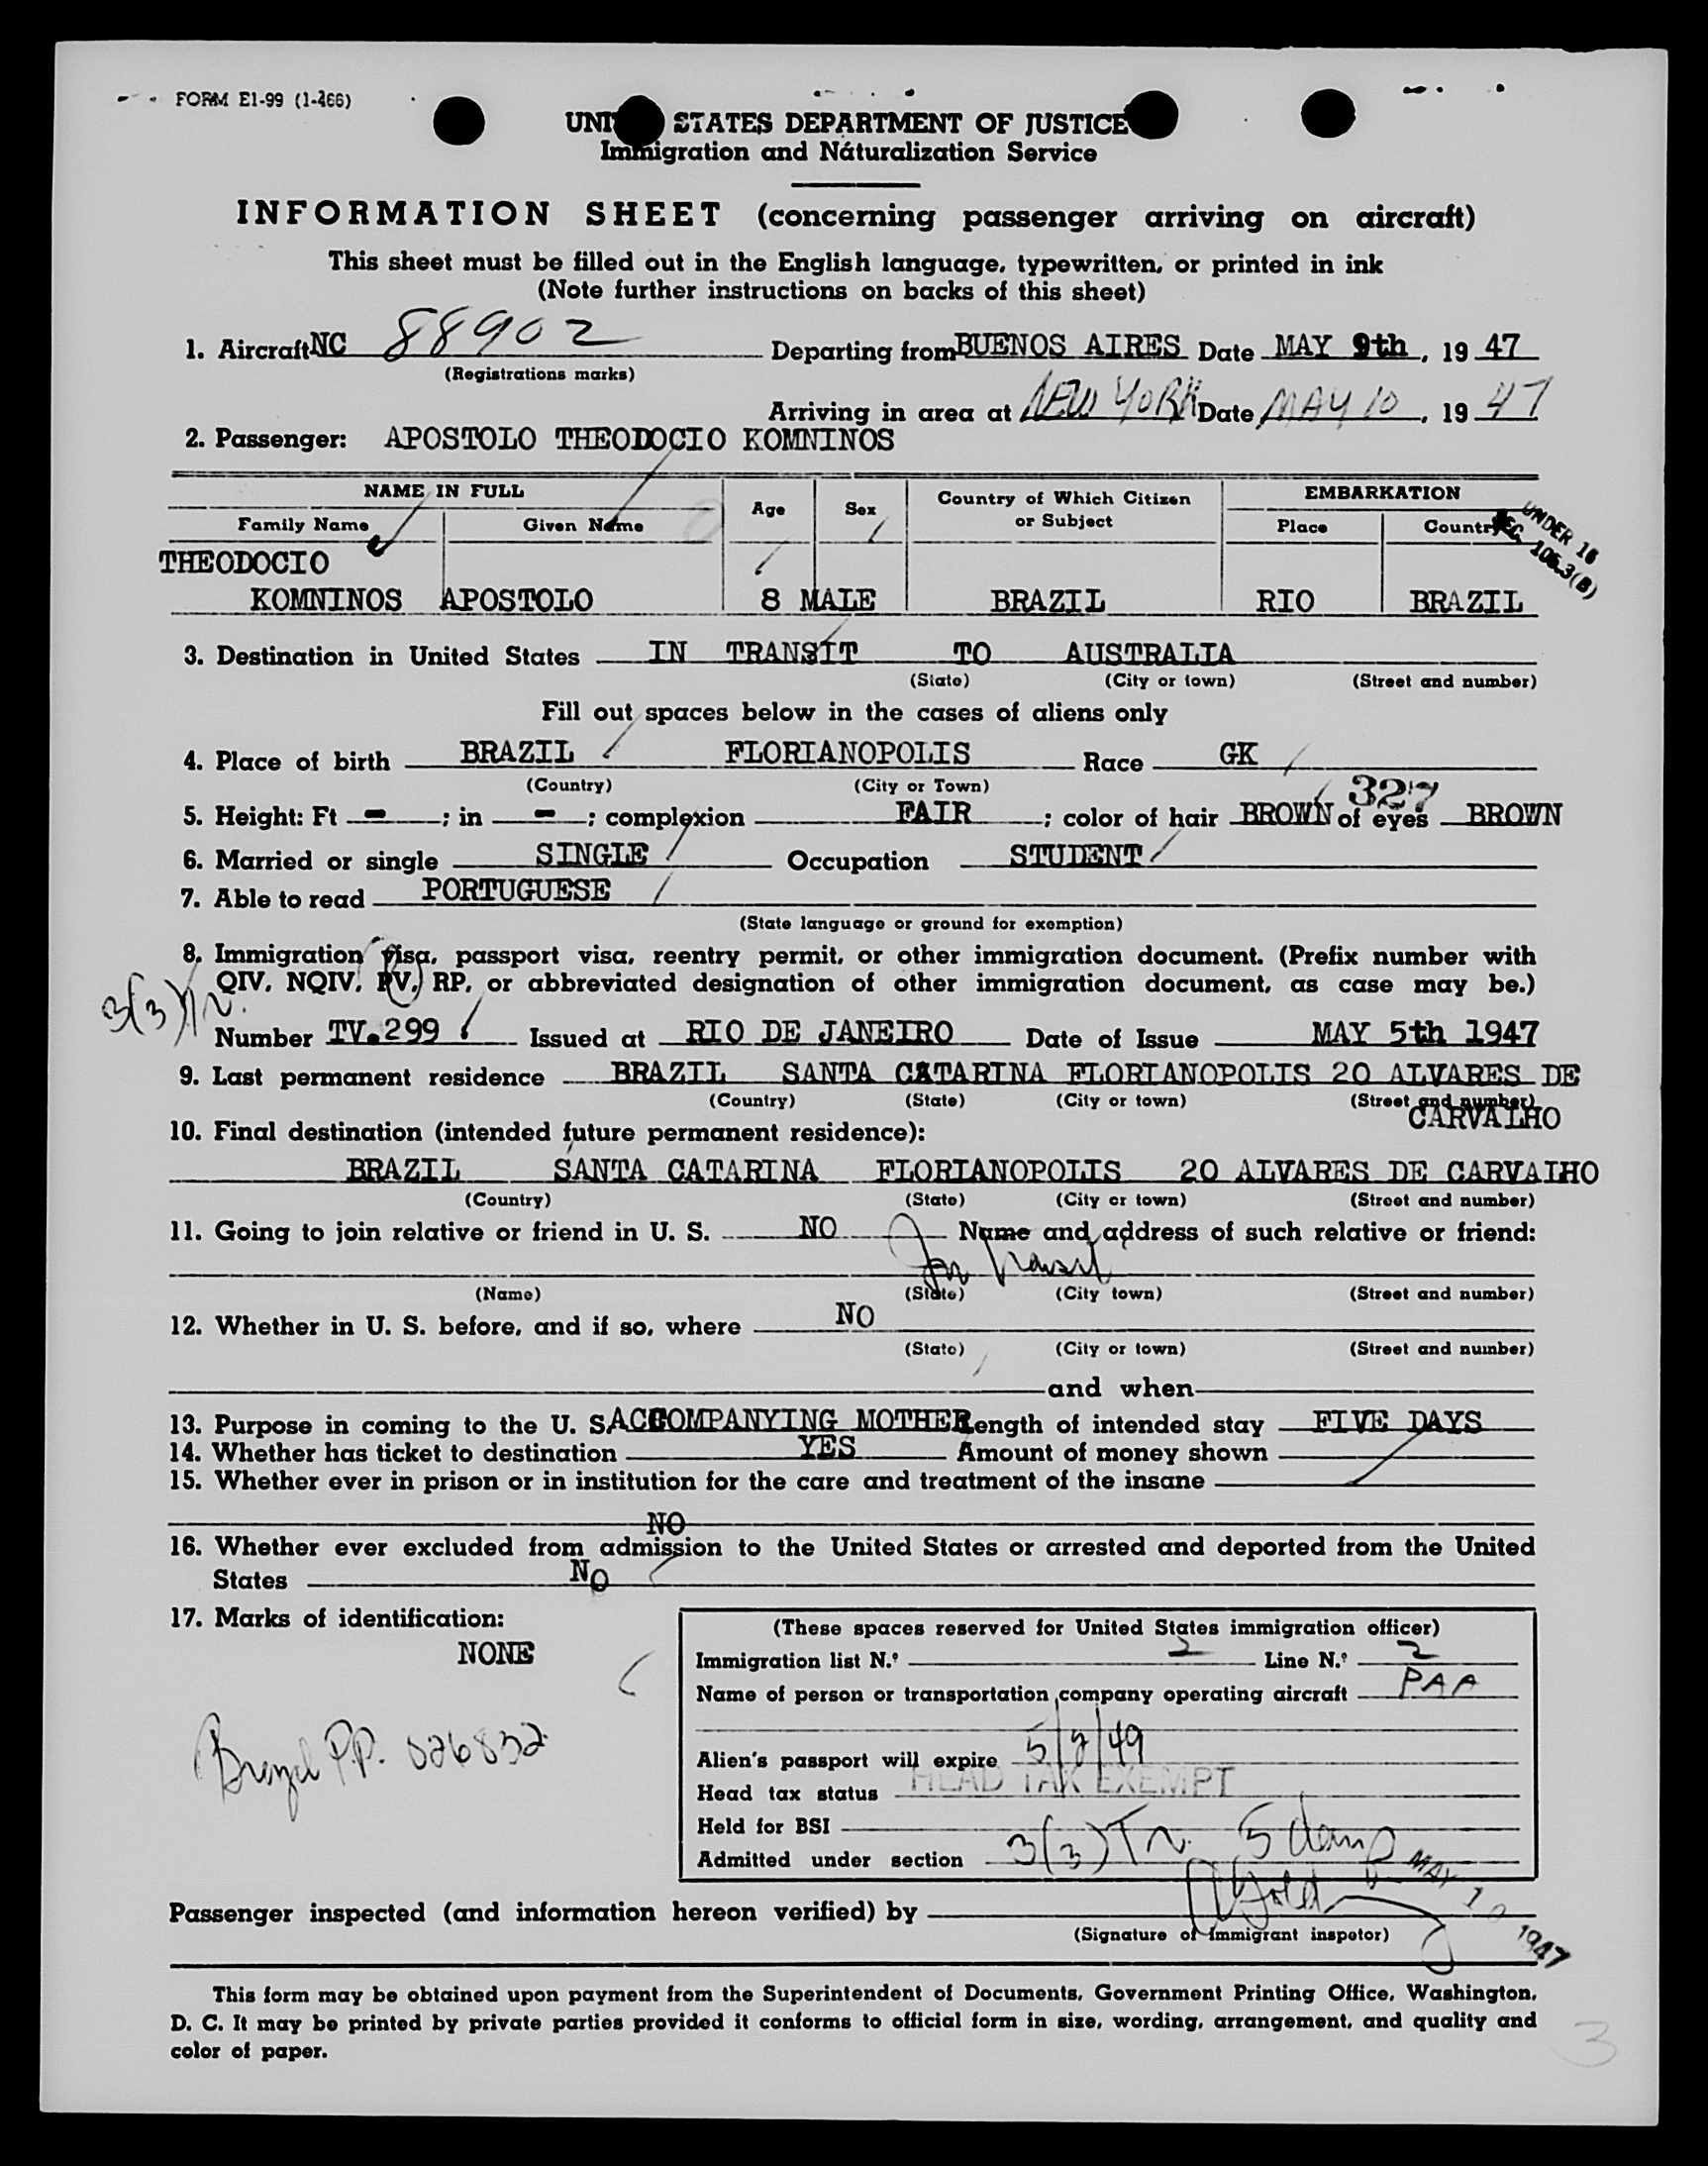 FORM E1-99 (1-466)
UNI STATES DEPARTMENT OF JUSTICE
Immigration and Naturalization Service
INFORMATION SHEET (concerning passenger arriving on aircraft)
This sheet must be filled out in the English language, typewritten, or printed in ink
(Note further instructions on backs of this sheet)
1. Aircraft NC 88902 Departing from BUENOS AIRES Date MAY 9th, 19 47
(Registrations marks)
Arriving in area at NEW YORK Date MAY 10, 19 47
2. Passenger: APOSTOLO THEODOCIO KOMNINOS
NAME IN FULL Age Sex Country of Which Citizen or Subject EMBARKATION
Family Name Given Name Place Country
UNDER 16
SEC. 106.3(B)
THEODOCIO
KOMNINOS APOSTOLO 8 MALE BRAZIL RIO BRAZIL
3. Destination in United States IN TRANSIT TO AUSTRALIA
(State) (City or town) (Street and number)
Fill out spaces below in the cases of aliens only
4. Place of birth BRAZIL FLORIANOPOLIS Race GK
(Country) (City or Town) 327
5. Height: Ft - ; in - ; complexion FAIR ; color of hair BROWN of eyes BROWN
6. Married or single SINGLE Occupation STUDENT
7. Able to read PORTUGUESE
(State language or ground for exemption)
8. Immigration visa, passport visa, reentry permit, or other immigration document. (Prefix number with
QIV, NQIV, PV, RP, or abbreviated designation of other immigration document, as case may be.)
3(3)
Number TV.299 Issued at RIO DE JANEIRO Date of Issue MAY 5th 1947
9. Last permanent residence BRAZIL SANTA CATARINA FLORIANOPOLIS 20 ALVARES DE
(Country) (State) (City or town) (Street and number)
CARVALHO
10. Final destination (intended future permanent residence):
BRAZIL SANTA CATARINA FLORIANOPOLIS 20 ALVARES DE CARVALHO
(Country) (State) (City or town) (Street and number)
11. Going to join relative or friend in U. S. NO Name and address of such relative or friend:
(Name) (State) (City town) (Street and number)
12. Whether in U. S. before, and if so, where NO
(State) (City or town) (Street and number)
and when
13. Purpose in coming to the U. S. ACCOMPANYING MOTHER Length of intended stay FIVE DAYS
14. Whether has ticket to destination YES Amount of money shown
15. Whether ever in prison or in institution for the care and treatment of the insane
NO
16. Whether ever excluded from admission to the United States or arrested and deported from the United
States NO
17. Marks of identification:
NONE
Brazil P.P. 026832
(These spaces reserved for United States immigration officer)
Immigration list N.º 2 Line N.º 2
Name of person or transportation company operating aircraft PAA
Alien's passport will expire 5/2/49
Head tax status HEAD TAX EXEMPT
Held for BSI
Admitted under section 3(3) Tr. 5 days
MAY 10 1947
Passenger inspected (and information hereon verified) by
(Signature of Immigrant inspetor)
This form may be obtained upon payment from the Superintendent of Documents, Government Printing Office, Washington,
D. C. It may be printed by private parties provided it conforms to official form in size, wording, arrangement, and quality and
color of paper.
3